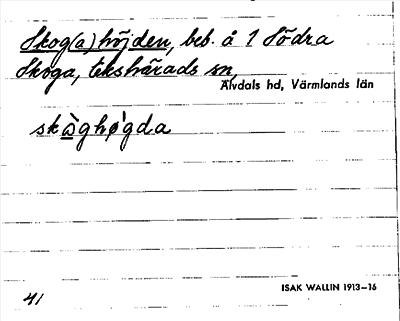 Skog(a)höjden, beb. å 1 Södra
Skoga, Ekshärads sn,
Älvdals hd, Värmlands län
skò̱ghø̀gda
ISAK WALLIN 1913–16
41